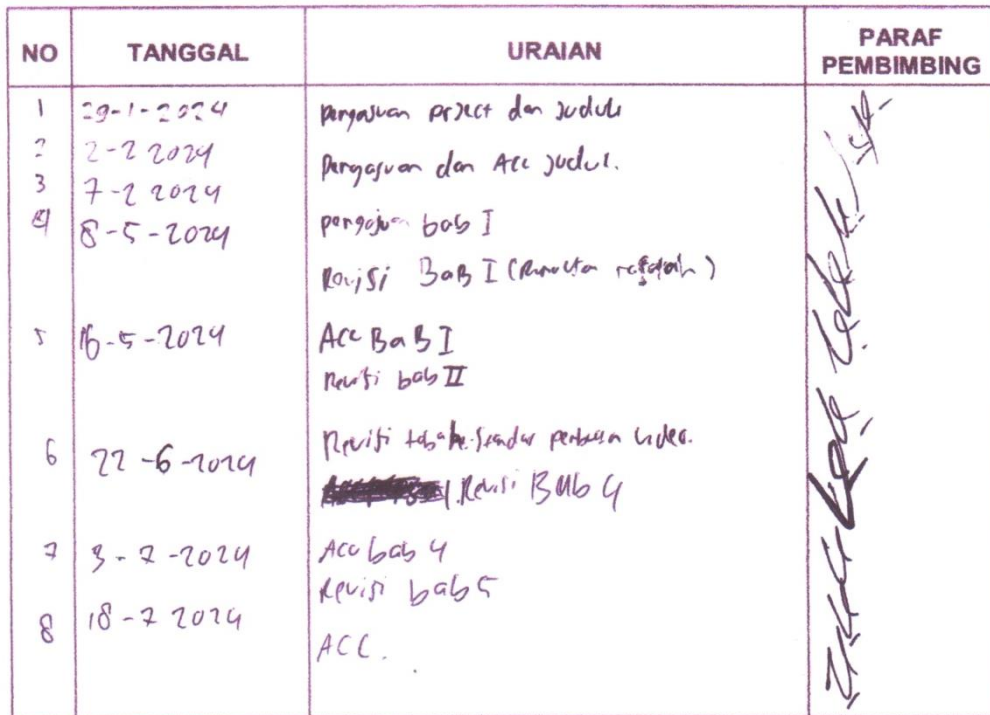 NO TANGGAL URAIAN PARAF PEMBIMBING
1 29-1-2024 pengajuan project dan judul
2 2-2 2024 Pengajuan dan Acc judul.
3 7-2 2024
4 8-5-2024 pengajuan bab I
Revisi BaB I (
5 16-5-2024 Acc BaB I
Revisi bab II
6 22-6-2024 Revisi
Revisi BAb 4
7 3-7-2024 Acc bab 4
Revisi bab 5
8 18-7 2024
ACC.